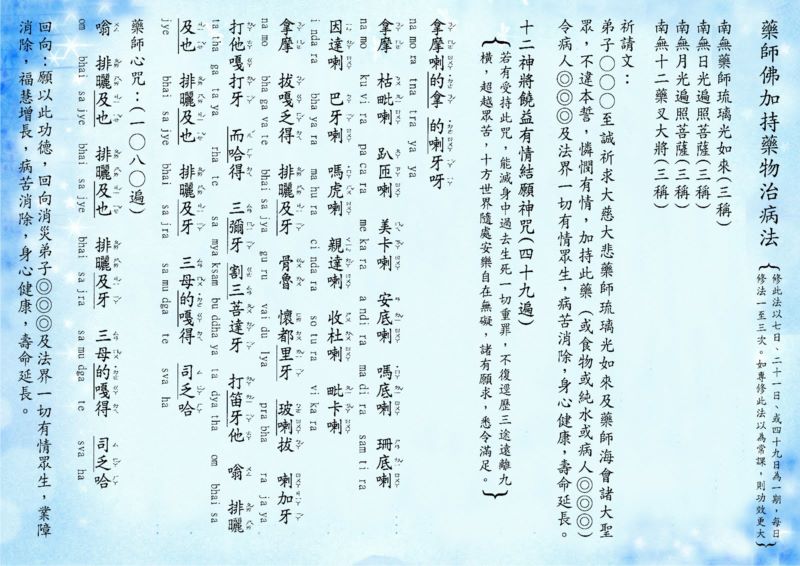 藥師佛加持藥物治病法
{修此法以七日、二十一日、或四十九日為一期，每日
修法一至三次。如專修此法以為常課，則功效更大}
南無藥師琉璃光如來(三稱)
南無日光遍照菩薩(三稱)
南無月光遍照菩薩(三稱)
南無十二藥叉大將(三稱)
祈請文：
弟子〇〇〇至誠祈求大慈大悲藥師琉璃光如來及藥師海會諸大聖
眾，不違本誓，憐憫有情，加持此藥(或食物或純水或病人◎◎◎)
令病人◎◎◎及法界一切有情眾生，病苦消除，身心健康，壽命延長。
十二神將饒益有情結願神咒(四十九遍)
{若有受持此咒，能滅身中過去生死一切重罪，不復還歷三途遠離九
橫，超越眾苦，十方世界隨處安樂自在無礙，諸有願求，悉令滿足。}
拿摩喇的拿 的喇牙呀
na mo ra tna tra ya ya
拿摩 枯毗喇 趴匝喇 美卡喇 安底喇 嗎底喇 珊底喇
na mo ku vi ra pa ca ra me ka ra a ndi ra ma di ra sam ti ra
因達喇 巴牙喇 嗎虎喇 親達喇 收杜喇 毗卡喇
i nda ra bha ya ra ma hu ra ci nda ra so tu ra vi ka ra
拿摩 拔嘎乏得 排曬及牙 骨魯 懷都里牙 玻喇拔 喇加牙
na mo bha ga va te bhai sa jya gu ru vai du lya pra bha ra ja ya
打他嘎打牙 而哈得 三彌牙 割三菩達牙 打笛牙他 嗡 排曬
ta tha ga ta ya rha te sa mya ksam bu ddha ya ta dya tha om bhai sa
及也 排曬及也 排曬及牙 三母的嘎得 司乏哈
jye bhai sa jye bhai sa jra sa mu dga te sva ha
藥師心咒：(一〇八〇遍)
嗡 排曬及也 排曬及也 排曬及牙 三母的嘎得 司乏哈
om bhai sa jye bhai sa jye bhai sa jra sa mu dga te sva ha
回向：願以此功德，回向消災弟子◎◎◎及法界一切有情眾生，業障
消除，福慧增長，病苦消除，身心健康，壽命延長。